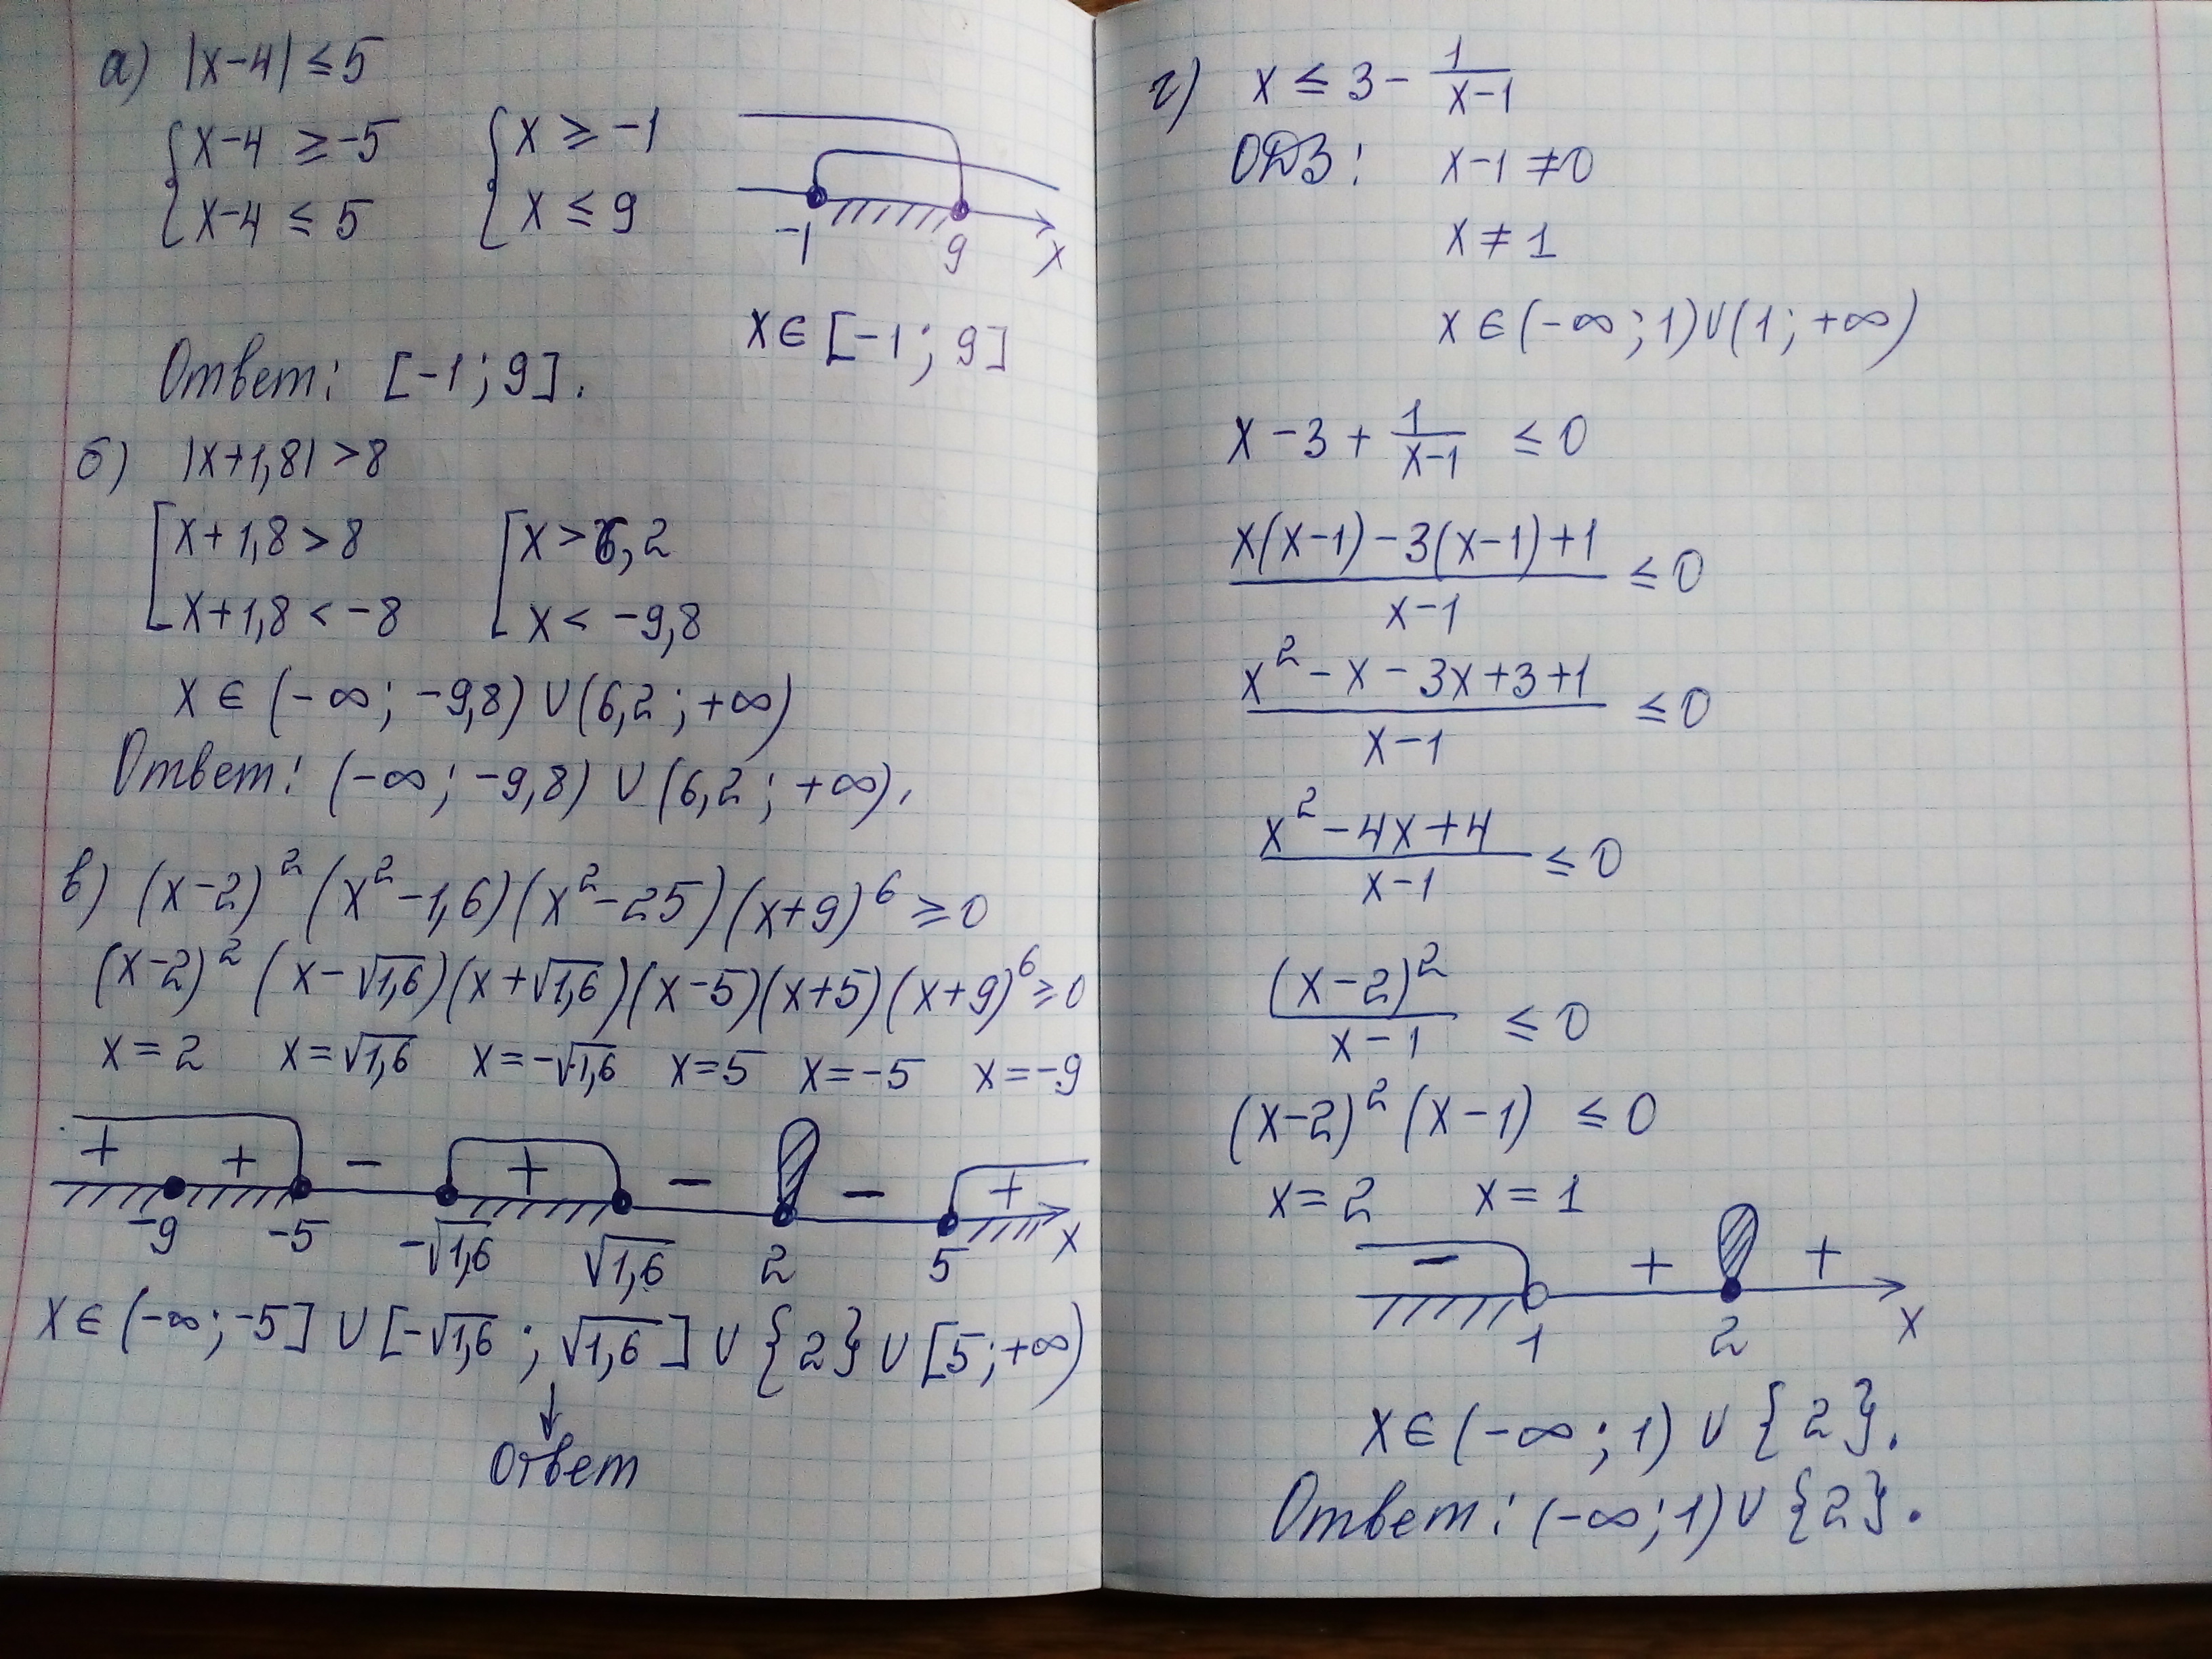 а) |x-4| ≤ 5
{ x-4 ≥ -5 { x ≥ -1
{ x-4 ≤ 5 { x ≤ 9
-1 9 x
x ∈ [-1; 9]
Ответ: [-1; 9].
б) |x+1,8| > 8
[ x+1,8 > 8 [ x > 6,2
[ x+1,8 < -8 [ x < -9,8
x ∈ (-∞; -9,8) ∪ (6,2; +∞)
Ответ: (-∞; -9,8) ∪ (6,2; +∞).
в) (x-2)² (x²-1,6)(x²-25)(x+9)⁶ ≥ 0
(x-2)² (x-√1,6)(x+√1,6)(x-5)(x+5)(x+9)⁶ ≥ 0
x=2 x=√1,6 x=-√1,6 x=5 x=-5 x=-9
+ + - + - - +
-9 -5 -√1,6 √1,6 2 5 x
x ∈ (-∞; -5] ∪ [-√1,6; √1,6] ∪ {2} ∪ [5; +∞)
↓
Ответ
г) x ≤ 3 - 1/(x-1)
ОДЗ: x-1 ≠ 0
x ≠ 1
x ∈ (-∞; 1) ∪ (1; +∞)
x - 3 + 1/(x-1) ≤ 0
(x(x-1)-3(x-1)+1)/(x-1) ≤ 0
(x²-x-3x+3+1)/(x-1) ≤ 0
(x²-4x+4)/(x-1) ≤ 0
(x-2)²/(x-1) ≤ 0
(x-2)² (x-1) ≤ 0
x=2 x=1
- + +
1 2 x
x ∈ (-∞; 1) ∪ {2}.
Ответ: (-∞; 1) ∪ {2}.